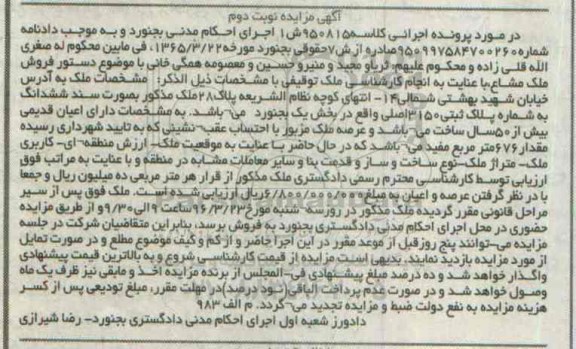 آگهی مزایده نوبت دوم
در مورد پرونده اجرائی کلاسه ۹۵۰۸۱۵ش۱ اجرای احکام مدنی بجنورد و به موجب دادنامه
شماره ۹۵۰۹۹۷۵۸۴۷۰۰۲۶۰ صادره از ش۷حقوقی بجنورد مورخه ۱۳۶۵/۳/۲۲، فی مابین محکوم له صغری
الله قلی زاده و محکوم علیهم: ثریا و مجید و منیر و حسین و معصومه همگی خانی با موضوع دستور فروش
ملک مشاع، با عنایت به انجام کارشناسی ملک توقیفی با مشخصات ذیل الذکر: مشخصات ملک به آدرس
خیابان شهید بهشتی شمالی۱۴- انتهای کوچه نظام الشریعه پلاک۲۸ ملک مذکور بصورت سند ششدانگ
به شماره پلاک ثبتی ۳۱۵۰اصلی واقع در بخش یک بجنورد می‌باشد. به مشخصات دارای اعیان قدیمی
بیش از ۵۰سال ساخت می‌باشد و عرصه ملک مزبور با احتساب عقب‌نشینی که به تایید شهرداری رسیده
مقدار ۶۷۶متر مربع مفید می‌باشد که در حال حاضر با عنایت به موقعیت ملک- ارزش منطقه‌ای- کاربری
ملک- متراژ ملک-نوع ساخت و ساز و قدمت بنا و سایر معاملات مشابه در منطقه و با عنایت به مراتب فوق
ارزیابی توسط کارشناسی محترم رسمی دادگستری ملک مذکور از قرار هر متر مربعی ده میلیون ریال و جمعا
با در نظر گرفتن عرصه و اعیان به مبلغ ۶/۸۰۰/۰۰۰/۰۰۰ریال ارزیابی شده است. ملک فوق پس از سیر
مراحل قانونی مقرر گردیده ملک مذکور در روز سه شنبه مورخ ۹۶/۳/۲۳ ساعت ۹ الی ۹/۳۰ و از طریق مزایده
حضوری در محل اجرای احکام مدنی دادگستری بجنورد به فروش برسد، بنابراین متقاضیان شرکت در جلسه
مزایده می‌توانند پنج روز قبل از موعد مقرر در این اجرا حاضر و از کم و کیف موضوع مطلع و در صورت تمایل
از مورد مزایده بازدید نمایند. بدیهی است مزایده از قیمت کارشناسی شروع و به بالاترین قیمت پیشنهادی
واگذار خواهد شد و ده درصد مبلغ پیشنهادی فی‌المجلس از برنده مزایده اخذ و مابقی نیز ظرف یک ماه
وصول خواهد شد و در صورت عدم پرداخت الباقی(نود درصد) در مهلت مقرر، مبلغ تودیعی پس از کسر
هزینه مزایده به نفع دولت ضبط و مزایده تجدید می‌گردد. م الف ۹۸۳
دادورز شعبه اول اجرای احکام مدنی دادگستری بجنورد- رضا شیرازی